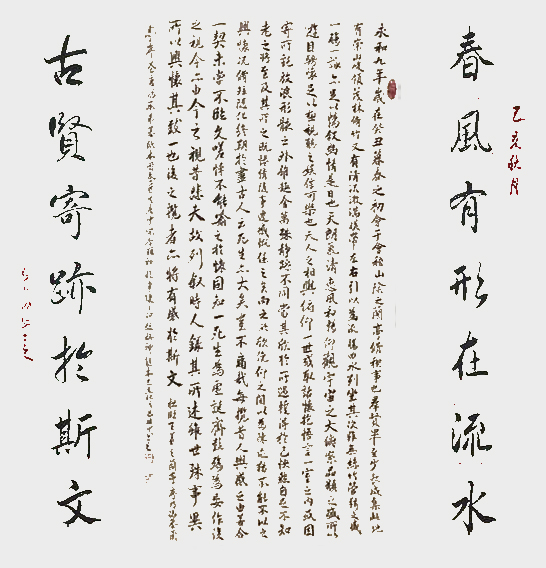 春風有形在流水
亥秋月
永和九年歲在癸丑暮春之初會于會稽山陰之蘭亭脩稧事也羣賢畢至少長咸集此地
有崇山峻領茂林脩竹又有清流激湍暎帶左右引以為流觴曲水列坐其次雖無絲竹管弦之盛
一觴一詠亦足以暢敘幽情是日也天朗氣清惠風和暢仰觀宇宙之大俯察品類之盛所以
遊目騁懷足以極視聽之娛信可樂也夫人之相與俯仰一世或取諸懷抱悟言一室之內或因
寄所託放浪形骸之外雖趣舍萬殊靜躁不同當其欣於所遇暫得於己快然自足不知
老之將至及其所之既惓情隨事遷感慨係之矣向之所欣俛仰之間以為陳迹猶不能不以之
興懷況脩短隨化終期於盡古人云死生亦大矣豈不痛哉每攬昔人興感之由若合
一契未嘗不臨文嗟悼不能喻之於懷固知一死生為虛誕齊彭殤為妄作後
之視今亦由今之視昔悲夫故列敘時人錄其所述雖世殊事異
所以興懷其致一也後之覽者亦將有感於斯文
古賢寄跡於斯文